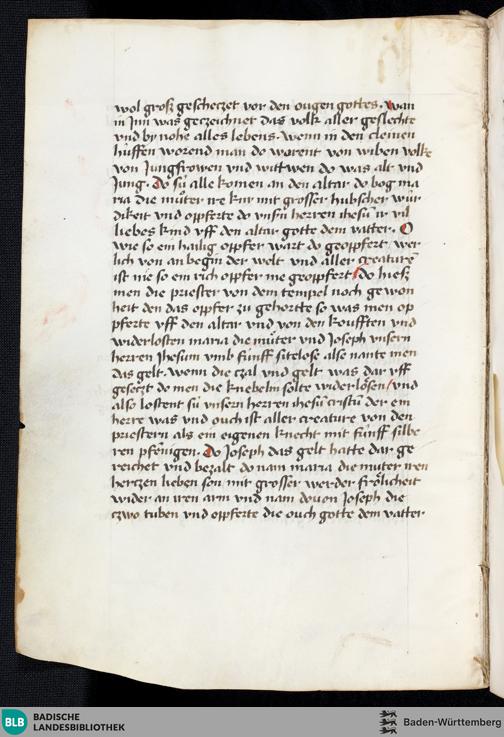 wol grosz geschetzet vor den ougen gottes. wan
in jnn was gerzeichnet das volk aller geslechte
vnd by nohe alles lebens. wenn in den cleinen
huffen worend man do worent von wiben volke
von Jungfrowen vnd wittwen do was alt vnd
Jung. Do sü alle komen an den altar do bog ma
ria die müter ire knü mit grosser hubscher wür
dikeit vnd oppferte do vnsn̄ herren ihesū ir vil
liebes kind vff den altar gotte dem vatter. O
wie so ein hailig oppfer wart do geoppfert wer
lich von anbegin der welt vnd aller creature
ist nie so ein rich oppfer nie geoppfert do hiesz
men die priester von dem tempel noch gewon
heit den das opfer zu gehortte so was men op
pferte vff den altar vnd von den koufften vnd
widerlosten maria die müter vnd Joseph vnsern
herren Jhesum vmb fünff sitelose also nante men
das gelt. wenn die czal vnd gelt was dar vff
gesetzt do men die knebelin solte widerlösen/ vnd
also lostent sü vnsern herren ihesū cristū der ein
herre was vnd ouch ist aller creature von den
priestern als ein eigenen knecht mit fünff silbe
ren pfennigen. Do Joseph das gelt hatte dar ge
reichet vnd bezalt do nam maria die muter iren
hertzen lieben son mit grosser werder frölicheit
wider an iren arm vnd nam douon Joseph die
czwo tuben vnd oppferte die ouch gotte dem vatter
BLB
BADISCHE
LANDESBIBLIOTHEK
Baden-Württemberg